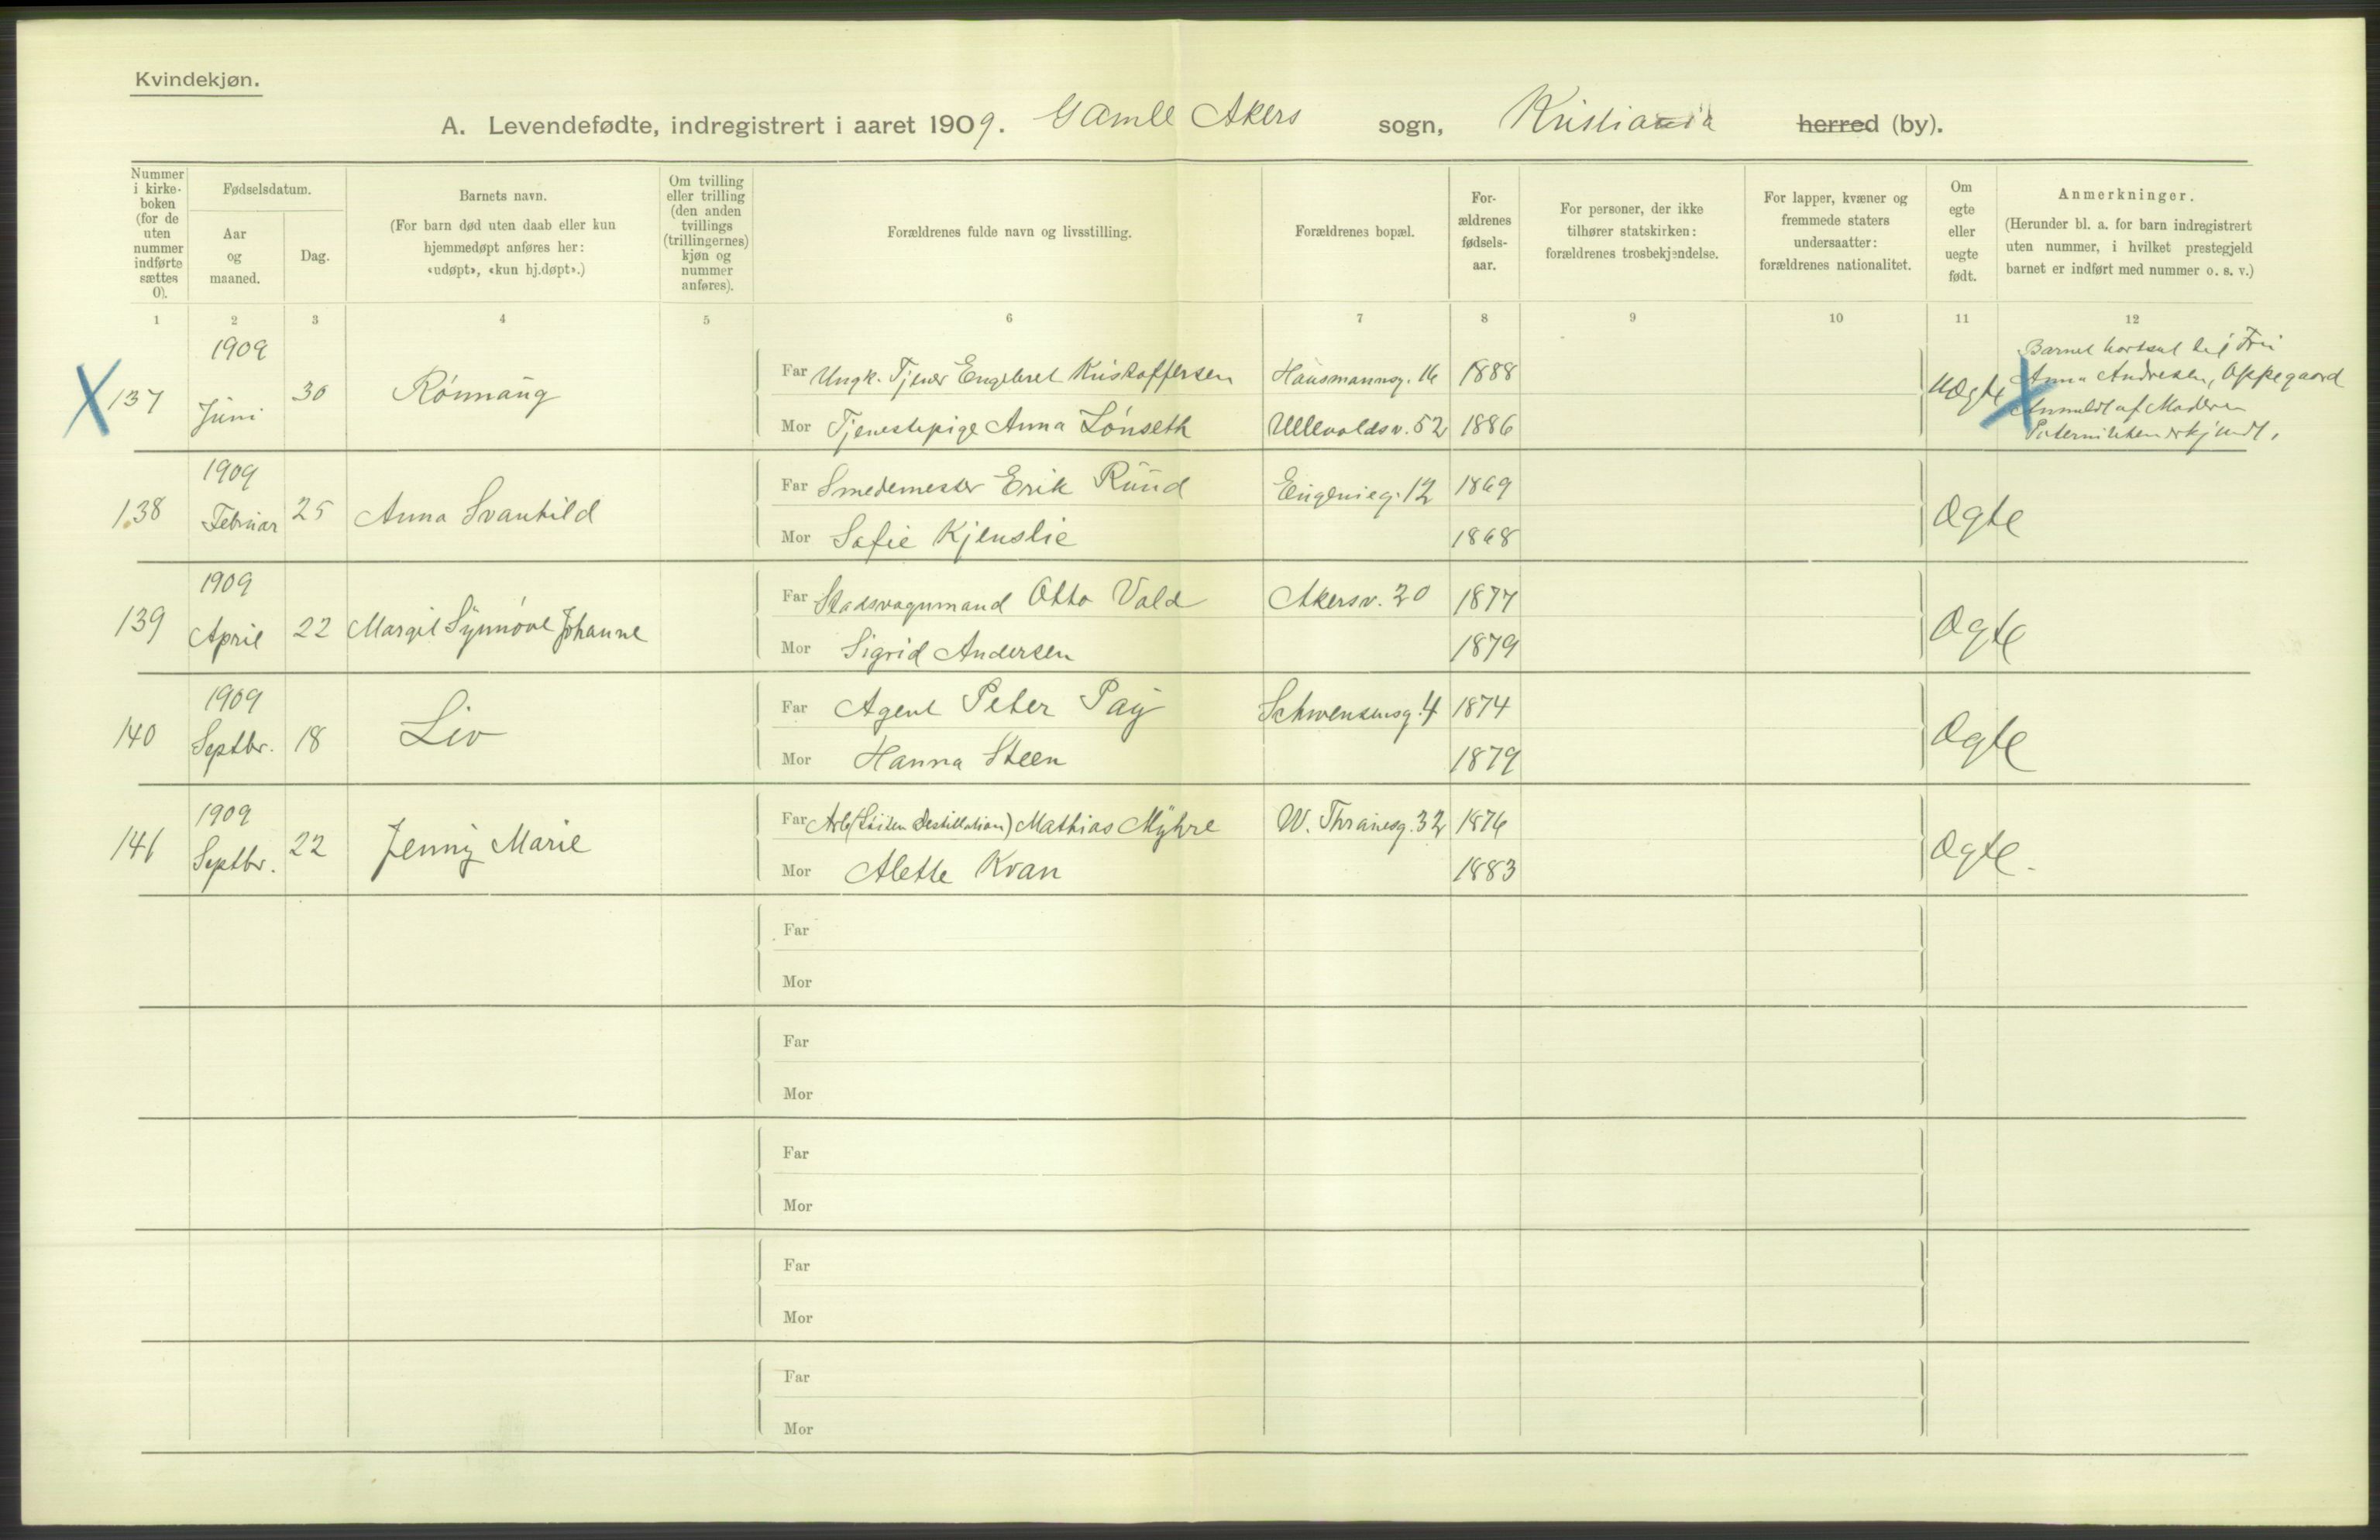 Kvindekjøn.
A. Levendefødte, indregistrert i aaret 1909. Gamle Akers sogn, Kristiania herred (by).
Nummer i kirke-boken (for de uten nummer indførte sættes 0).
Fødselsdatum.
Aar og maaned.
Dag.
Barnets navn.
(For barn død uten daab eller kun hjemmedøpt anføres her: «udøpt», «kun hj.døpt».)
Om tvilling eller trilling (den anden tvillings (trillingernes) kjøn og nummer anføres).
Forældrenes fulde navn og livsstilling.
Forældrenes bopæl.
For-ældrenes fødsels-aar.
For personer, der ikke tilhører statskirken: forældrenes trosbekjendelse.
For lapper, kvæner og fremmede staters undersaatter: forældrenes nationalitet.
Om egte eller uegte født.
Anmerkninger.
(Herunder bl. a. for barn indregistrert uten nummer, i hvilket prestegjeld barnet er indført med nummer o. s. v.)
1 2 3 4 5 6 7 8 9 10 11 12
X 137 1909 Juni 30 Rønnaug
Far Ungk. Tjener Engebret Kristoffersen Hausmannsg. 16 1888
Mor Tjenestepige Anna Lønseth Ullevoldsv. 52 1886
Uægte
Barnet bortsat til Fru
Anna Andresen, Oppegaard
Anmeldt af Moderen
X
138 1909 Februar 25 Anna Svanhild
Far Smedemester Erik Ruud Eugenieg. 12 1869
Mor Sofie Kjenslie 1868
Ægte
139 1909 April 22 Margit Synnøve Johanne
Far Stadsvognmand Otto Vold Akersv. 20 1877
Mor Sigrid Andersen 1879
Ægte
140 1909 Septbr. 18 Liv
Far Agent Peter Pay Schwensensg. 4 1874
Mor Hanna Steen 1879
Ægte
141 1909 Septbr. 22 Jenny Marie
Far Arb (Løiten Destillation) Mathias Myhre W. Thranesg. 32 1876
Mor Alette Kvan 1883
Ægte.
Far
Mor
Far
Mor
Far
Mor
Far
Mor
Far
Mor